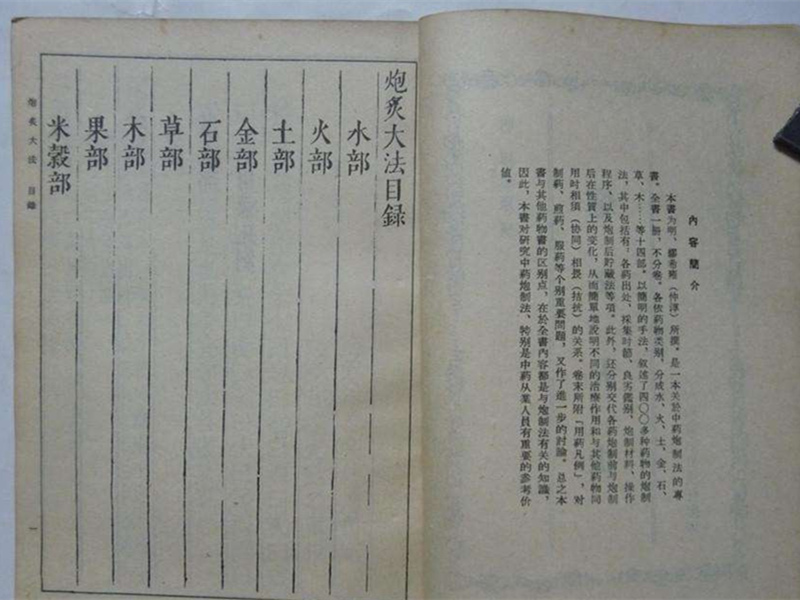 內容簡介
本書为明、繆希雍（仲淳）所撰。是一本关於中药炮制法的專
書。全書一册，不分卷。各依药物类别，分成水、火、土、金、石、
草、木……等十四部。以簡明的手法，叙述了四〇〇多种药物的炮制
法，其中包括有：各药出处、採集时節、良劣鑑别、炮制材料、操作
程序，以及炮制后貯藏法等項。此外，还分别交代各药炮制前与炮制
后在性質上的变化，从而簡單地說明不同的治療作用和与其他药物同
用时相須（协同）相畏（拮抗）的关系。卷末所附「用药凡例」，对
制药、煎药、服药等个别重要問題，又作了進一步的討論。总之本
書与其他药物書的区别点，在於全書內容都是与炮制法有关的知識，
因此，本書对研究中药炮制法、特别是中药从業人員有重要的参考价
值。
炮炙大法目録
水部
火部
土部
金部
石部
草部
木部
果部
米穀部
炮炙大法 目錄
一